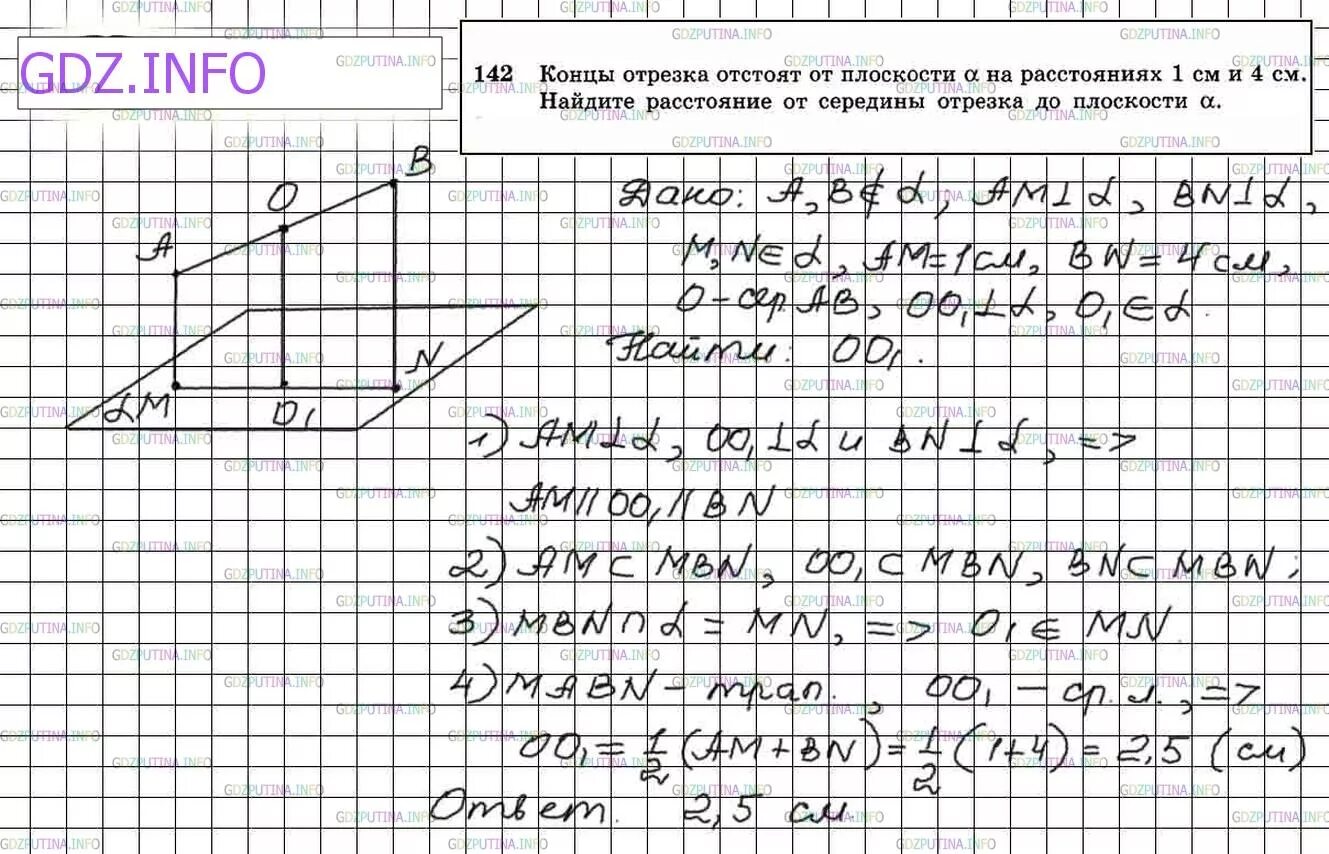 GDZ.INFO
142 Концы отрезка отстоят от плоскости α на расстояниях 1 см и 4 см.
Найдите расстояние от середины отрезка до плоскости α.
B
O
A
N
α M
O₁
Дано: A, B ∉ α, AM⊥α, BN⊥α,
M, N ∈ α, AM = 1 см, BN = 4 см,
O - сер. AB, OO₁⊥α, O₁ ∈ α.
Найти: OO₁.
1) AM⊥α, OO₁⊥α и BN⊥α, =>
AM || OO₁ || BN
2) AM ⊂ MBN, OO₁ ⊂ MBN, BN ⊂ MBN;
3) MBN ∩ α = MN, => O₁ ∈ MN
4) MABN - трап., OO₁ - ср. л., =>
OO₁ = 1/2 (AM + BN) = 1/2 (1+4) = 2,5 (см)
Ответ. 2,5 см.
GDZPUTINA.INFO